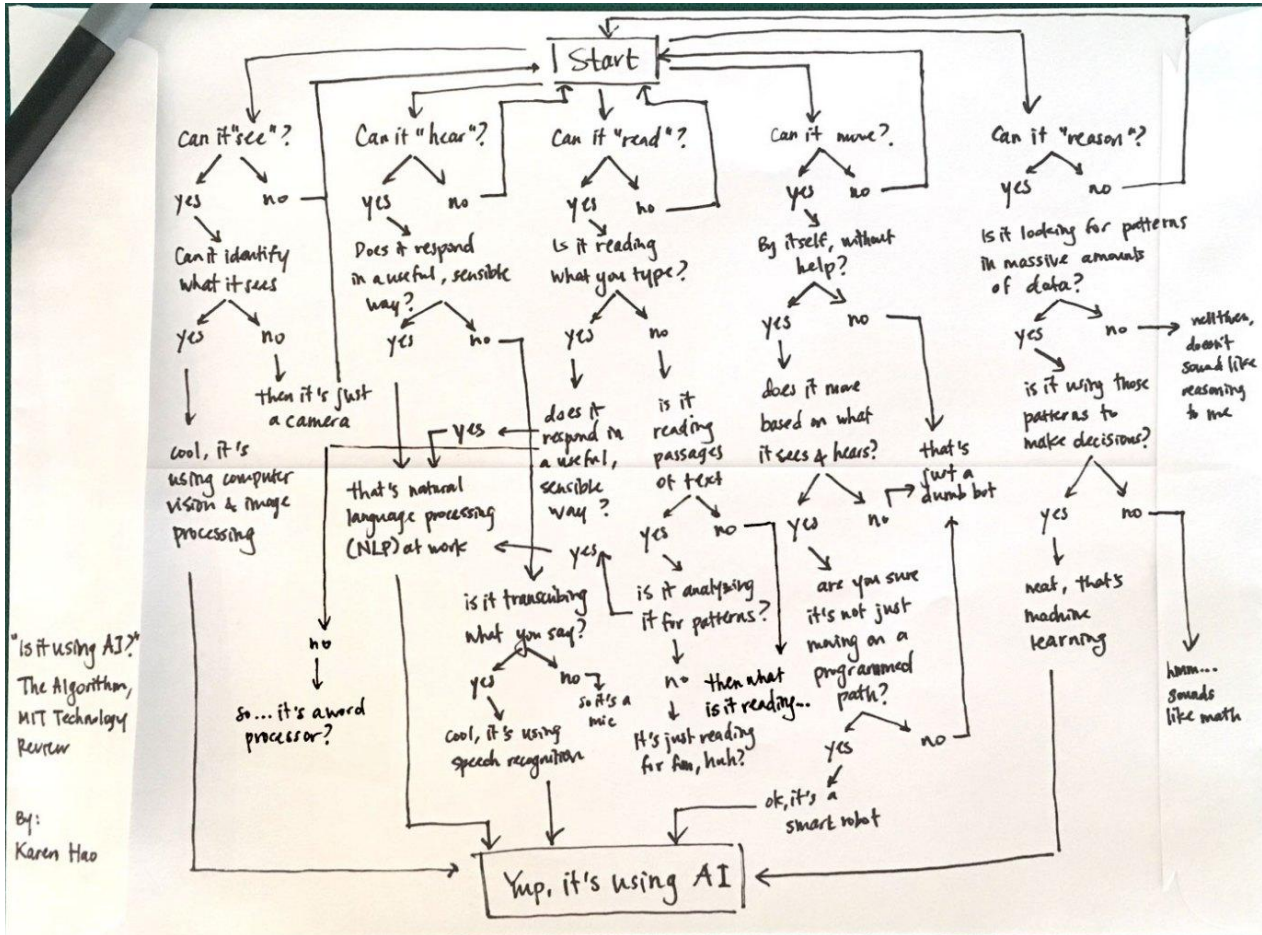 Start
Can it "see"?
yes
no
Can it identify
what it sees
yes
no
then it's just
a camera
cool, it's
using computer
vision & image
processing
Can it "hear"?
yes
no
Does it respond
in a useful, sensible
way?
yes
no
that's natural
language processing
(NLP) at work
is it transcribing
what you say?
yes
no
so it's a
mic
cool, it's using
speech recognition
Can it "read"?
yes
no
Is it reading
what you type?
yes
no
does it
respond in
a useful,
sensible
way?
yes
no
so... it's a word
processor?
is it
reading
passages
of text
yes
no
then what
is it reading...
is it analyzing
it for patterns?
yes
no
It's just reading
for fun, huh?
Can it move?
yes
no
By itself, without
help?
yes
no
does it move
based on what
it sees & hears?
yes
no
that's
just a
dumb bot
are you sure
it's not just
moving on a
programmed
path?
yes
no
ok, it's a
smart robot
Can it "reason"?
yes
no
Is it looking for patterns
in massive amounts
of data?
yes
no
well then,
doesn't
sound like
reasoning
to me
is it using those
patterns to
make decisions?
yes
no
neat, that's
machine
learning
hmm...
sounds
like math
Yup, it's using AI
"Is it using AI?"
The Algorithm,
MIT Technology
Review
By:
Karen Hao